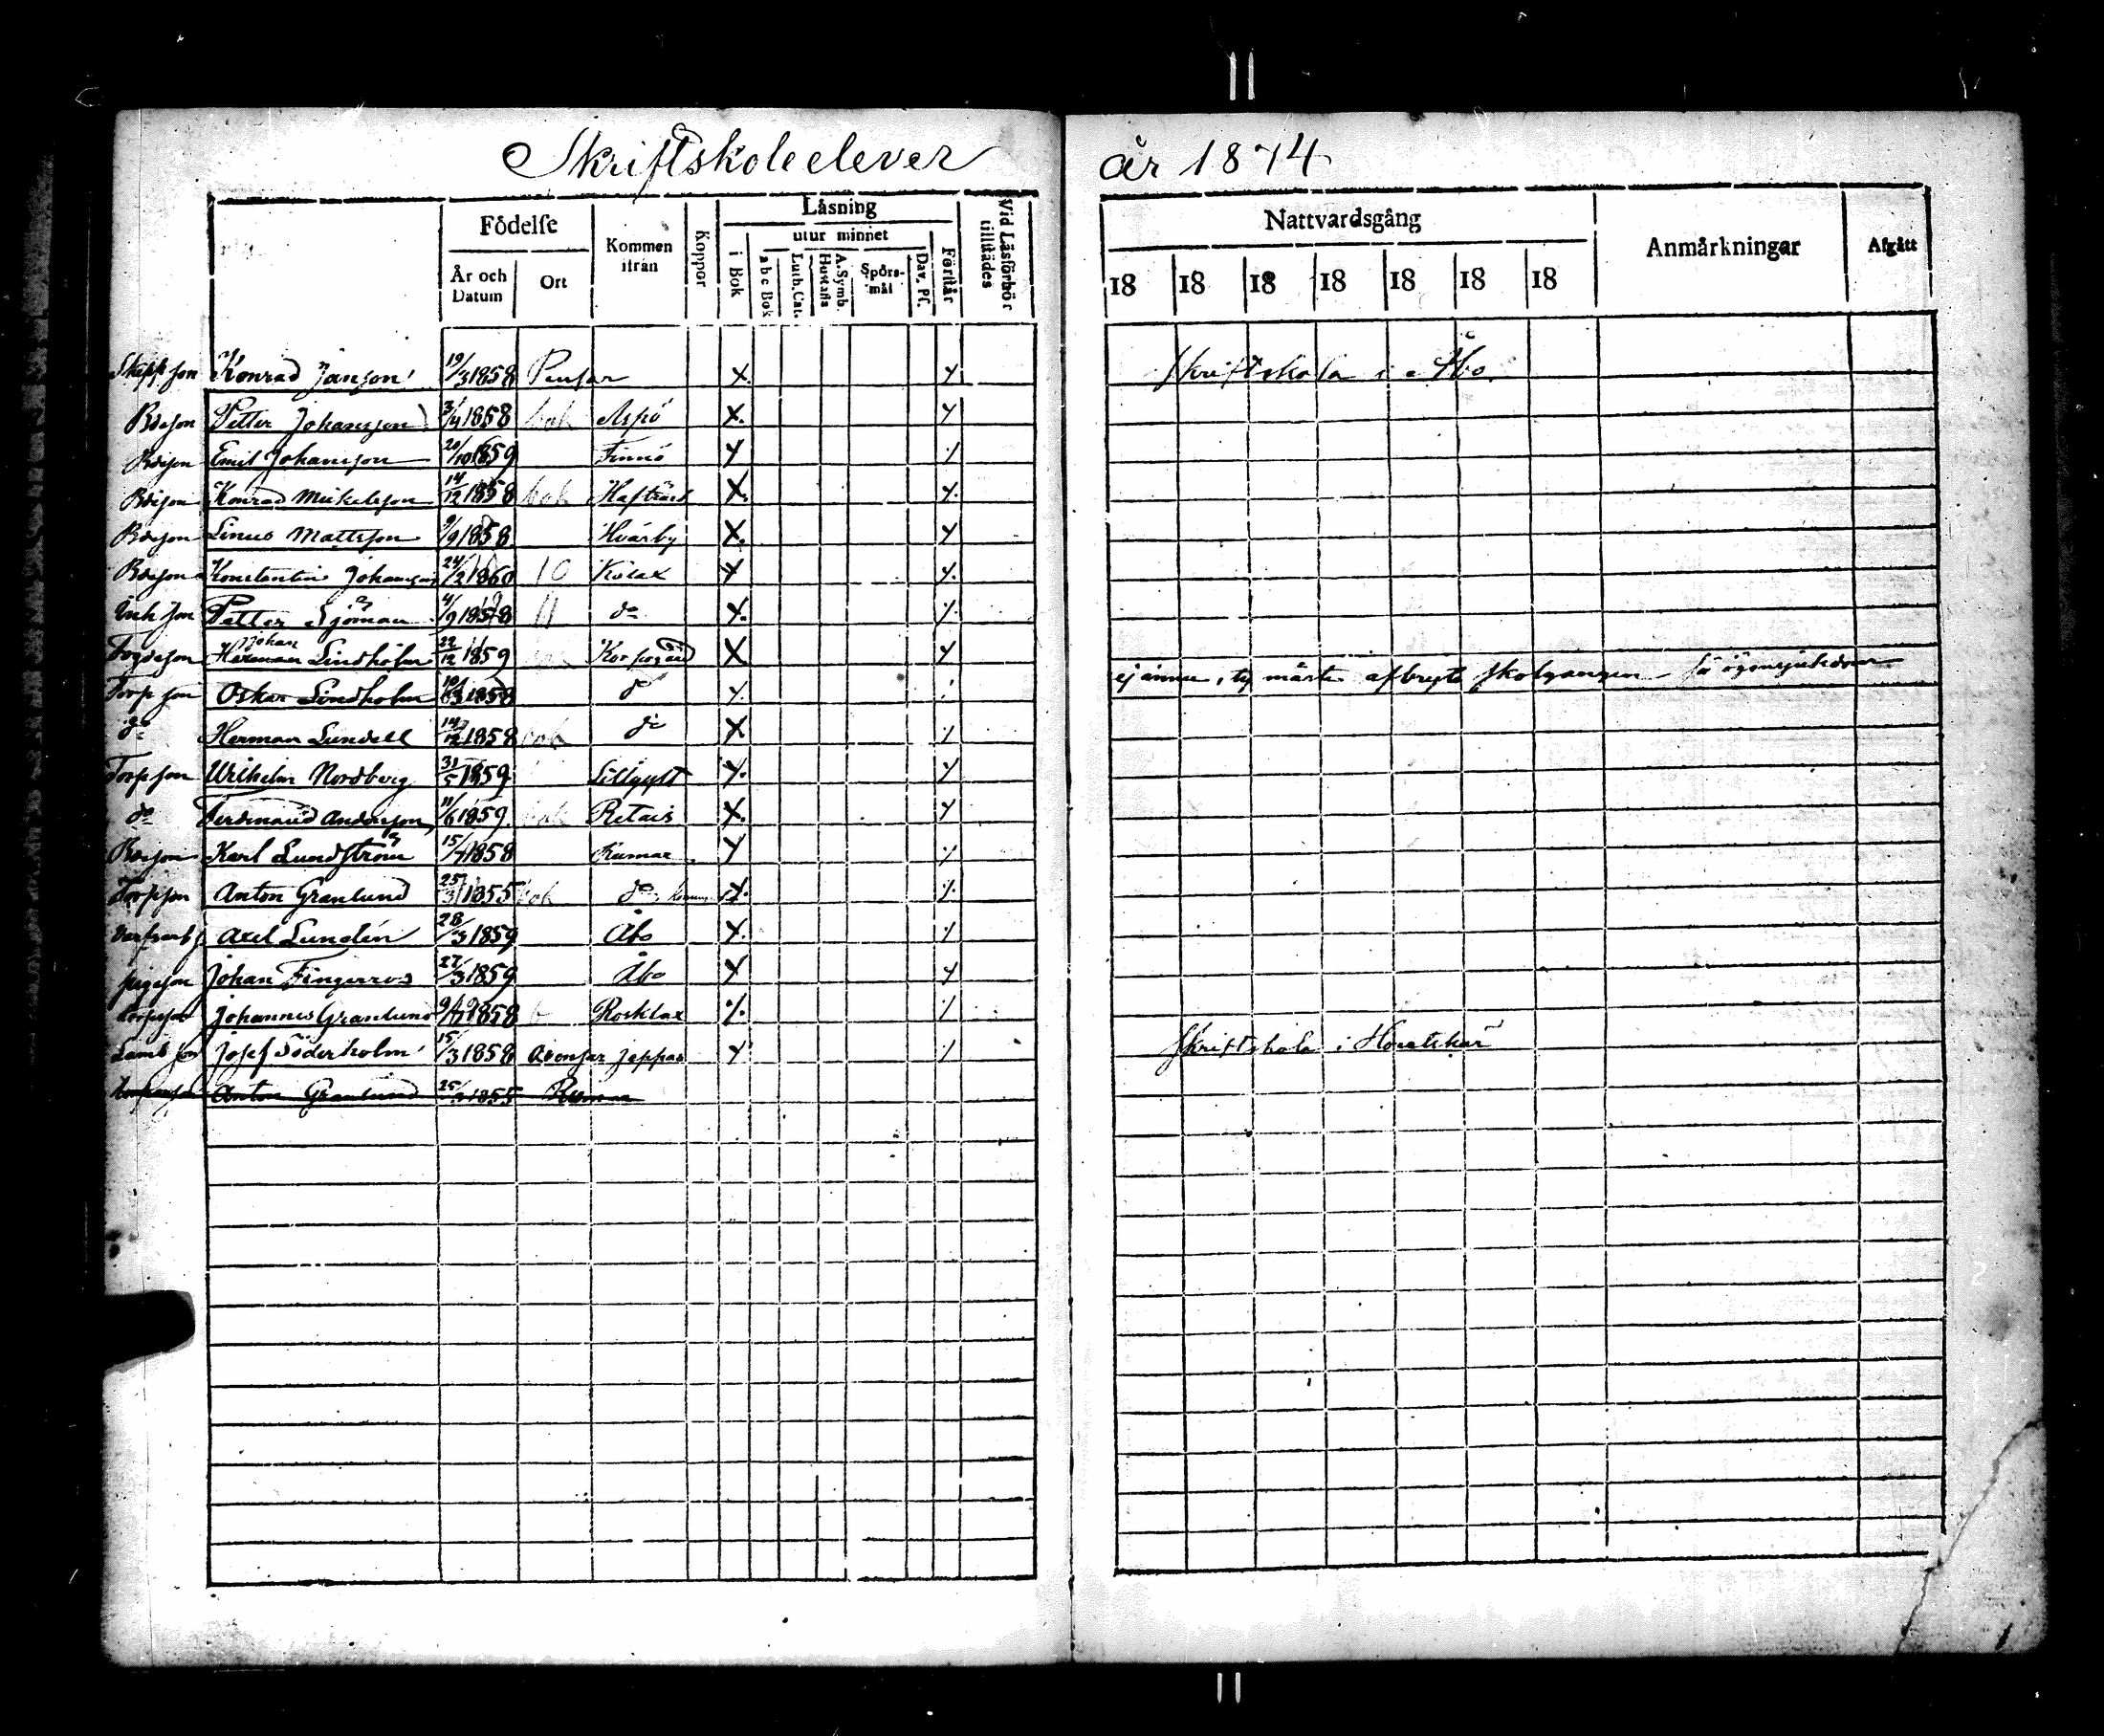 Skriftskoleelever år 1874
Födelse Kommen ifrån Koppor Läsning Vid Läsförhör tillstädes Nattvardsgång Anmärkningar Afgått
År och Datum Ort i Bok utur minnet Förstår
abc Bok Luth. Cat. A. Symb. Hustafla Spörsmål Dav. Ps.
18 18 18 18 18 18 18
Konrad Janson 19/3 1858 Pensar x Skriftskola i Åbo
Bdeson Petter Johansson 3/4 1858 Aspö x
Bdeson Emil Johansson 20/10 1859 Finnö
Bdeson Konrad Mickelsson 14/12 1858 Hafträsk x
Bdeson Linus Mattsson 9/9 1858 Hvarby x
Bdeson Konstantin Johansson 24/2 1860 10 Kälax
Inh son Petter Sjöman 4/9 1858 11 do x
Johan
Herman Lindholm 22/12 1859 Korpogård x
Torp son Oskar Lindholm 1858 do ej ännu, ty måste afbryta skolgangen för ögonsjukdom
do Herman Lundell 14/12 1858 do x
Torpson Wilhelm Nordberg 31/5 1859 Lillgytt
do Ferdinand Andersson 11/6 1859 Retais x
Bdeson Karl Lundström 15/7 1858 Rumar
Torpson Anton Granlund 25/3 1855 do
Axel Lundén 28/3 1859 Åbo
pigeson Johan Fingerroos 27/3 1859 Åbo
Torpson Johannes Granlund 1858 Rosklax
Josef Söderholm 15/3 1858 Avensar Jeppas Skriftskola i Houtskär
Anton Granlund 25/3 1855 Rumar